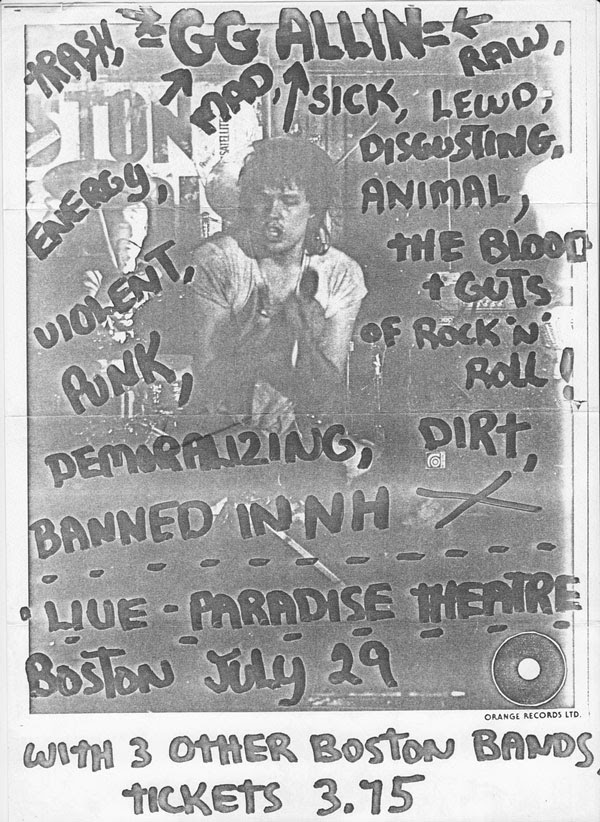 =GG ALLIN=
TRASH,
MAD,
RAW,
SICK, LEWD,
DISGUSTING,
ENERGY,
ANIMAL,
THE BLOOD
+ GUTS
OF ROCK 'N'
ROLL!
VIOLENT,
PUNK,
DEMORALIZING,
DIRT,
BANNED IN NH
LIVE - PARADISE THEATRE
BOSTON JULY 29
ORANGE RECORDS LTD.
WITH 3 OTHER BOSTON BANDS,
TICKETS 3.75
STON
SATELLITE